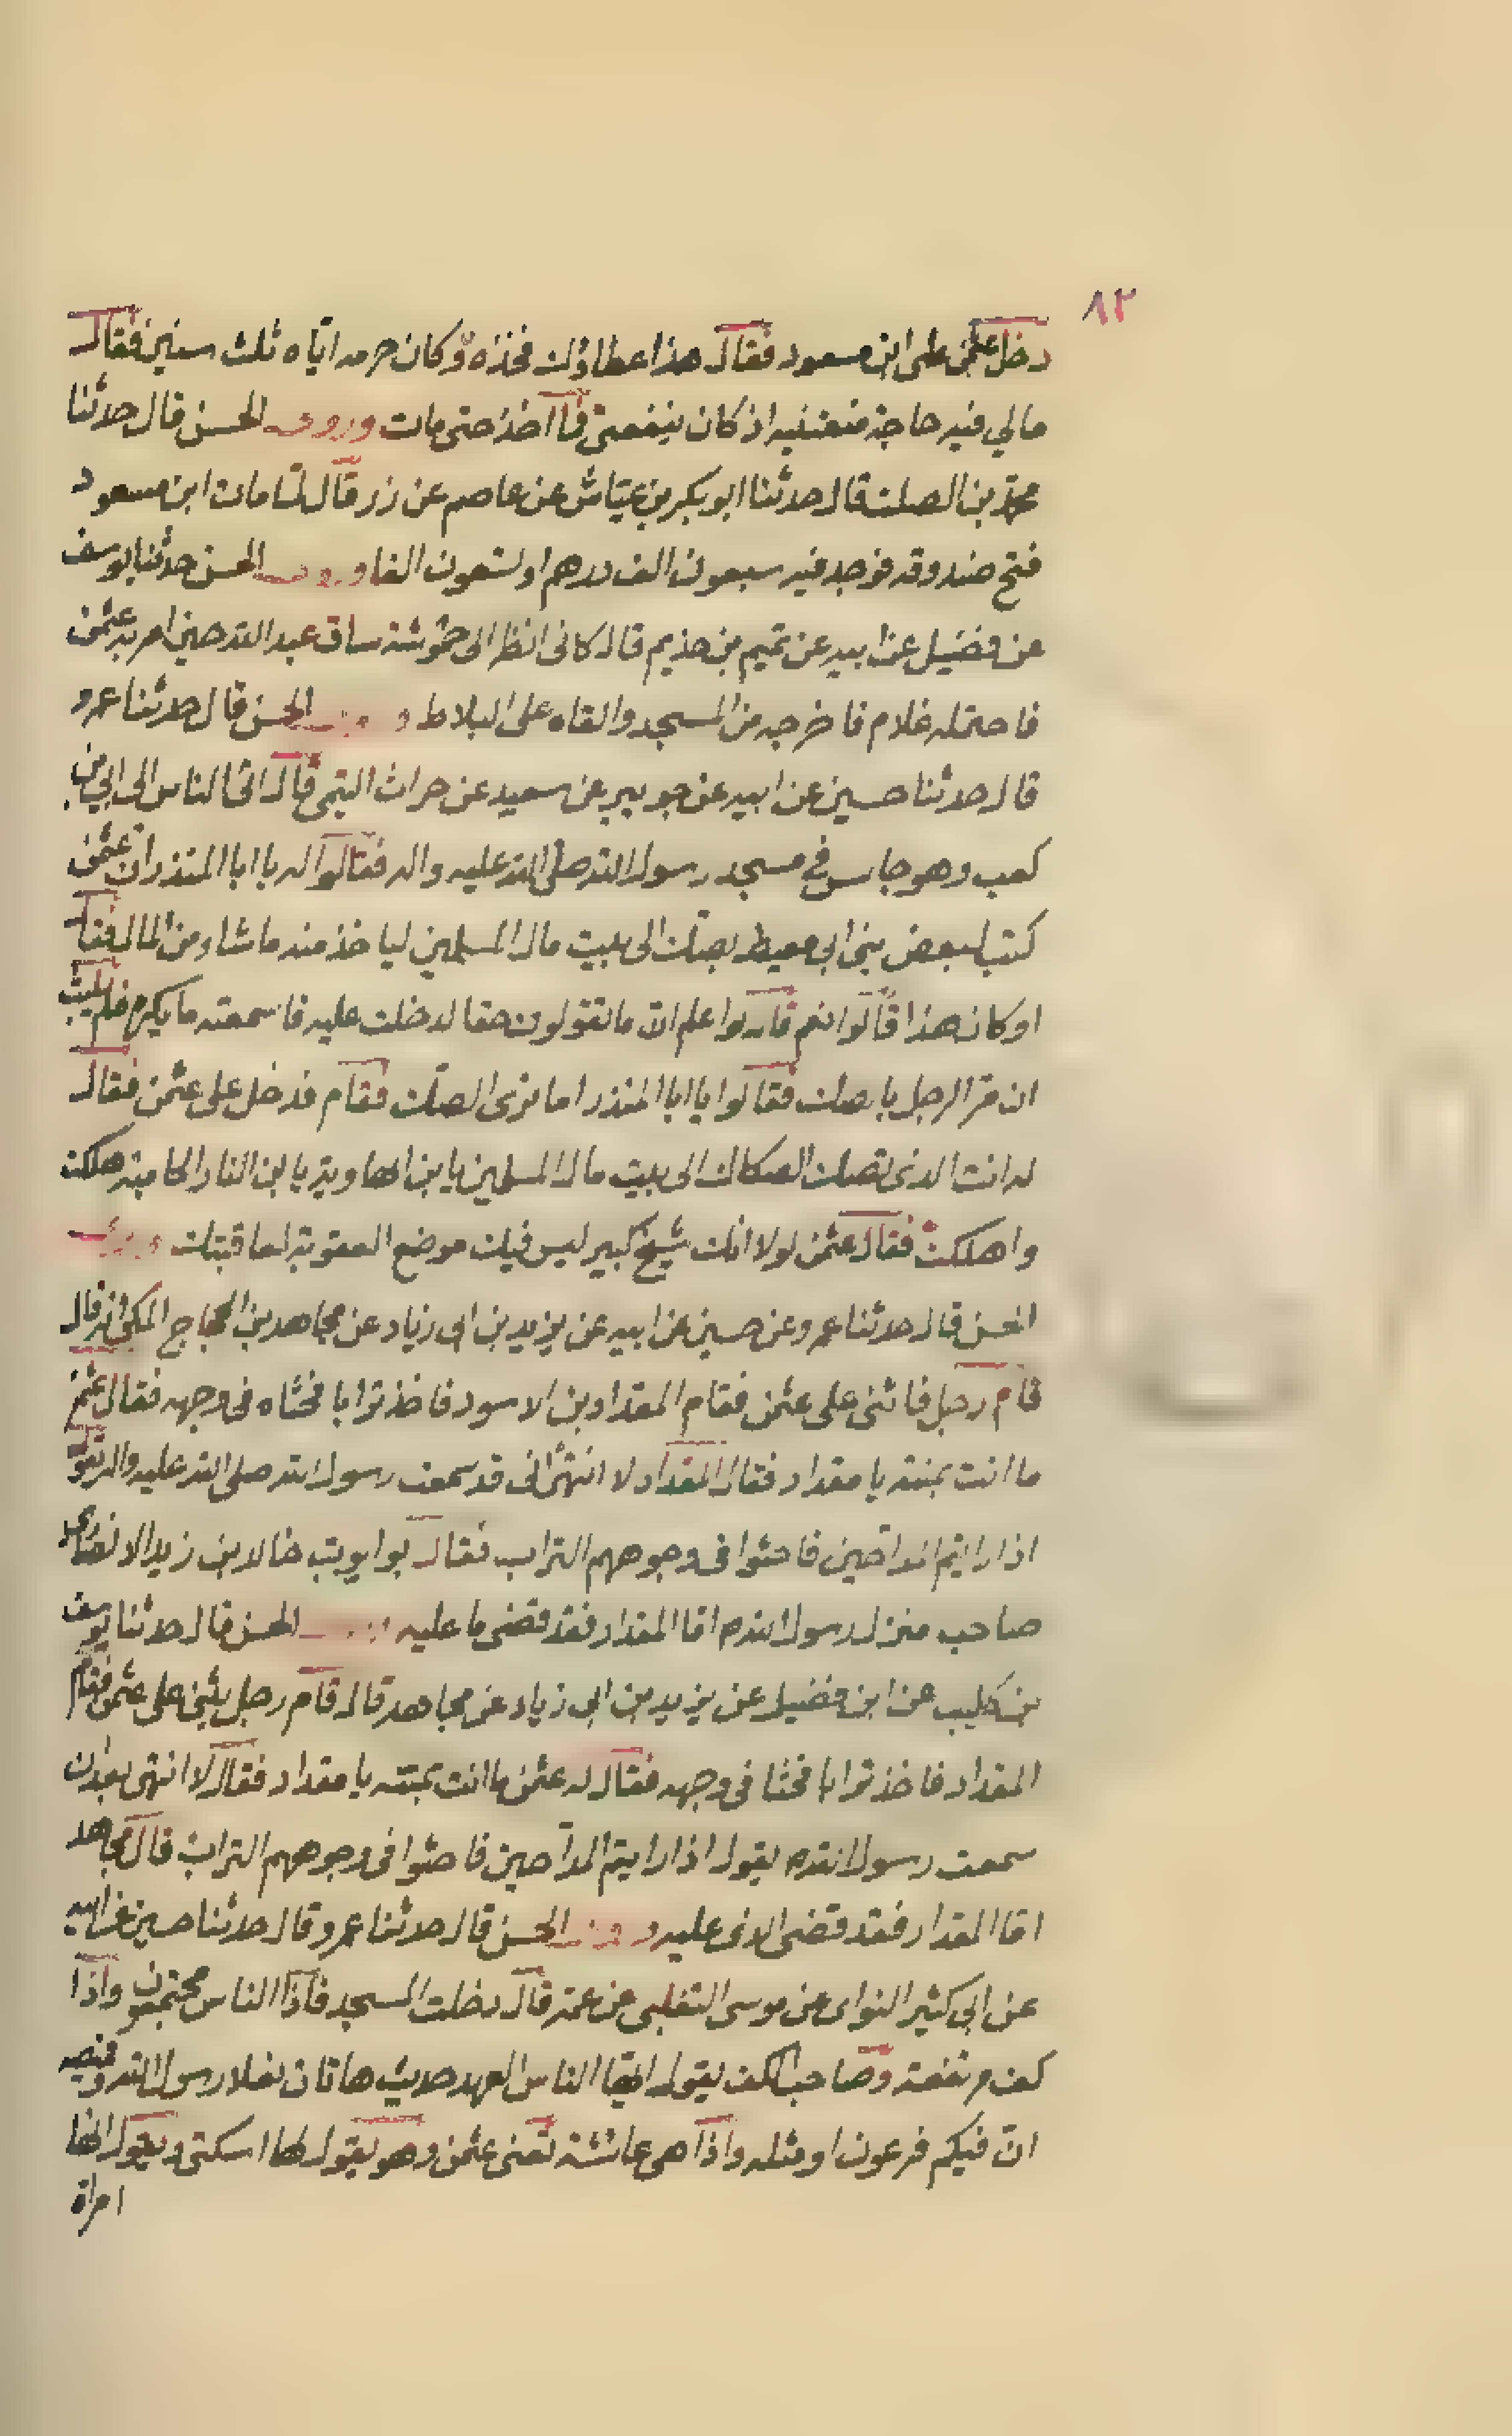 ٨٢
دخل عثمن على ابن مسعود فقال هذا عطاؤك فخذه وكان حرمه اياه ثلث سنين فقال
مالي فيه حاجة منعتنيه اذ كان ينفعني فما اخذ حتى مات وروى الحسن قال حدثنا
محمد بن الصلت قال حدثنا ابو بكر بن عياش عن عاصم عن زر قال لما مات ابن مسعود
فتح صندوقه فوجد فيه سبعون الف درهم او تسعون الفا وروى الحسن حدثنا يوسف
عن فضيل عن ابيه عن تميم بن حذيم قال كاني انظر الى حموشة ساق عبد الله حين امر به عثمن
فاحتمله غلام فاخرجه من المسجد والقاه على البلاط الحسن قال حدثنا عمرو
قال حدثنا حسين عن ابيه عن جويبر عن سعيد عن حراث التيمي قال اتى الناس الى ابي بن
كعب وهو جالس في مسجد رسول الله صلى الله عليه واله فقالوا له يا ابا المنذر ان عثمن
كتب لبعض بني ابي معيط بصك الى بيت مال المسلمين لياخذ منه ما شاء من المال فقال
او كان هذا قالوا نعم قال لو اعلم ان ما تقولون حقا لدخلت عليه فاسمعته ما يكره فلم يلبث
ان مر الرجل بالصك فقالوا يا ابا المنذر اما ترى الصك فقام فدخل على عثمن فقال
له انت الذي تصك الصكاك الى بيت مال المسلمين يا بن الهاوية يا بن النار الحامية هلكت
واهلكت فقال عثمن لولا انك شيخ كبير ليس فيك موضع العقوبة لعاقبتك
الحسن قال حدثنا عمرو عن حسين عن ابيه عن يزيد بن ابي زياد عن مجاهد بن الحجاج المكي انه قال
قام رجل فاثنى على عثمن فقام المقداد بن الاسود فاخذ ترابا فحثاه في وجهه فقال عثمن
ما انت بمنته يا مقداد فقال المقداد لا انتهى اني قد سمعت رسول الله صلى الله عليه واله يقول
اذا رايتم المداحين فاحثوا في وجوههم التراب فقال بو ايوب خالد بن زيد الانصاري
صاحب منزل رسول الله ص اما المقداد فقد قضى ما عليه الحسن قال حدثنا يوسف
بن كليب عن ابن فضيل عن يزيد بن ابي زياد عن مجاهد قال قام رجل يثني على عثمن فقام
المقداد فاخذ ترابا فحثا في وجهه فقال له عثمن ما انت بمنته يا مقداد فقال لا انتهى بعد ان
سمعت رسول الله ص يقول اذا رايتم المداحين فاحثوا في وجوههم التراب قال مجاهد
اما المقداد فقد قضى الذي عليه الحسن قال حدثنا عمرو قال حدثنا حسين عن ابيه
عن ابي كثير النواى عن موسى التغلبي عن عمه قال دخلت المسجد فاذا الناس مجتمعون واذا
كف مرتفعة وصاحب الكف يقول ايها الناس العهد حديث هاتان نعلا رسول الله وقميصه
ان فيكم فرعون او مثله واذا هي عائشة تعني عثمن وهو يقول لها اسكتي ويقول انها
امراة